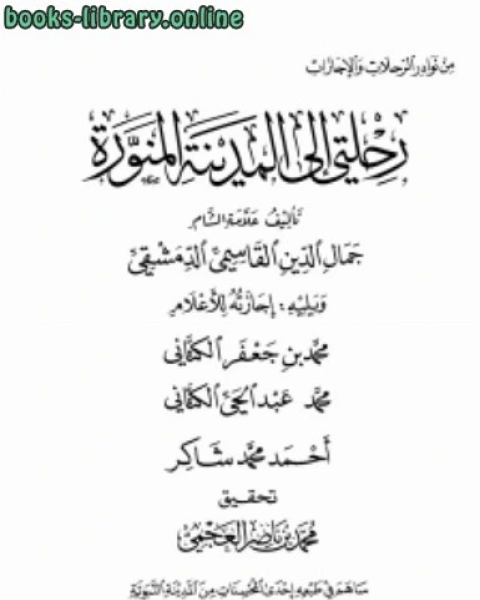 books-library.online
مِن نَوادِر الرّحلات وَالإجَازات
رِحْلَتِي إلى المَدِيْنَةِ المُنَوَّرَة
تَأْلِيْفُ عَلَّامَةِ الشَّام
جَمَال الدِّين القَاسِمِيّ الدِّمَشْقِيّ
وَيَلِيْهِ : إجَازَتُهُ لِلأَعْلَام
محمّد بن جَعْفَر الكتّاني
محمّد عَبْد الحَيّ الكتّاني
أَحْمَد محمّد شَاكِر
تحقيق
محمّد بن ناصِر العَجْمِيّ
سَاهَمَ في طَبْعِهِ إحْدَى المُحْسِنَاتِ مِنَ المَدِيْنَةِ النَّبَوِيَّةِ